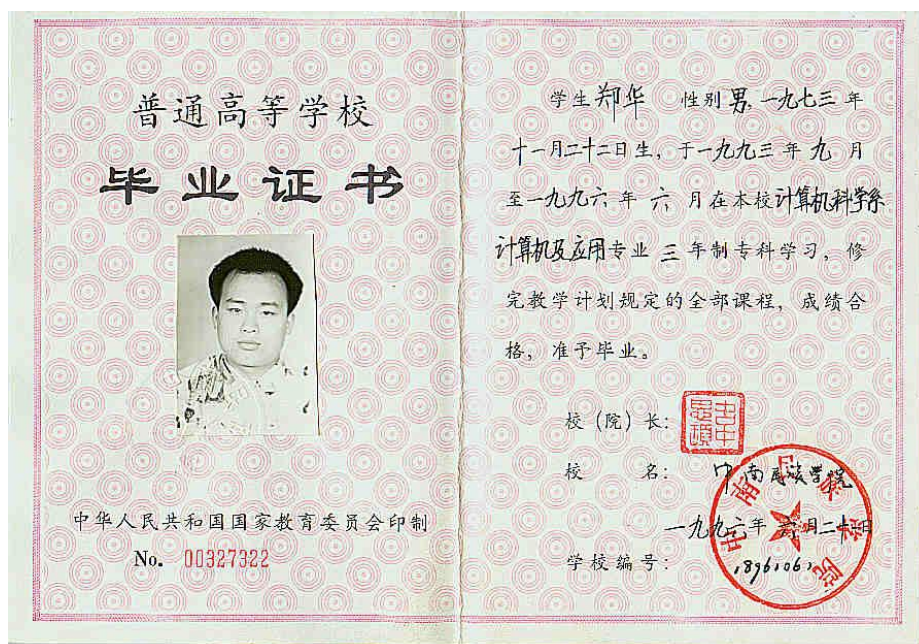 普通高等学校
毕业证书
中华人民共和国国家教育委员会印制
No. 00327322
学生 郑华 性别 男, 一九七三年
十一月二十二日生, 于一九九三年九月
至一九九六年六月在本校计算机科学系
计算机及应用专业 三 年制专科学习, 修
完教学计划规定的全部课程, 成绩合
格, 准予毕业。
校(院)长:
校 名: 中南民族学院
一九九六年 月二十 日
学校编号:
中南民族学院